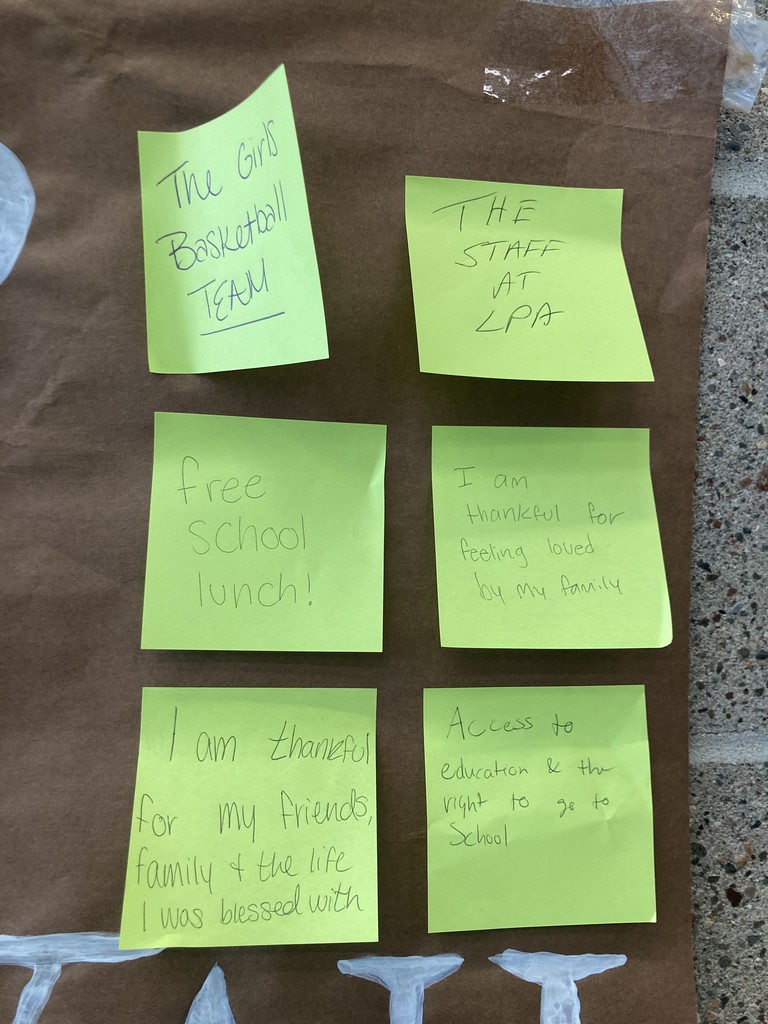 The Girls
Basketball
TEAM
THE
STAFF
AT
LPA
free
school
lunch!
I am
thankful for
feeling loved
by my family
I am thankful
for my friends,
family & the life
I was blessed with
Access to
education & the
right to go to
School